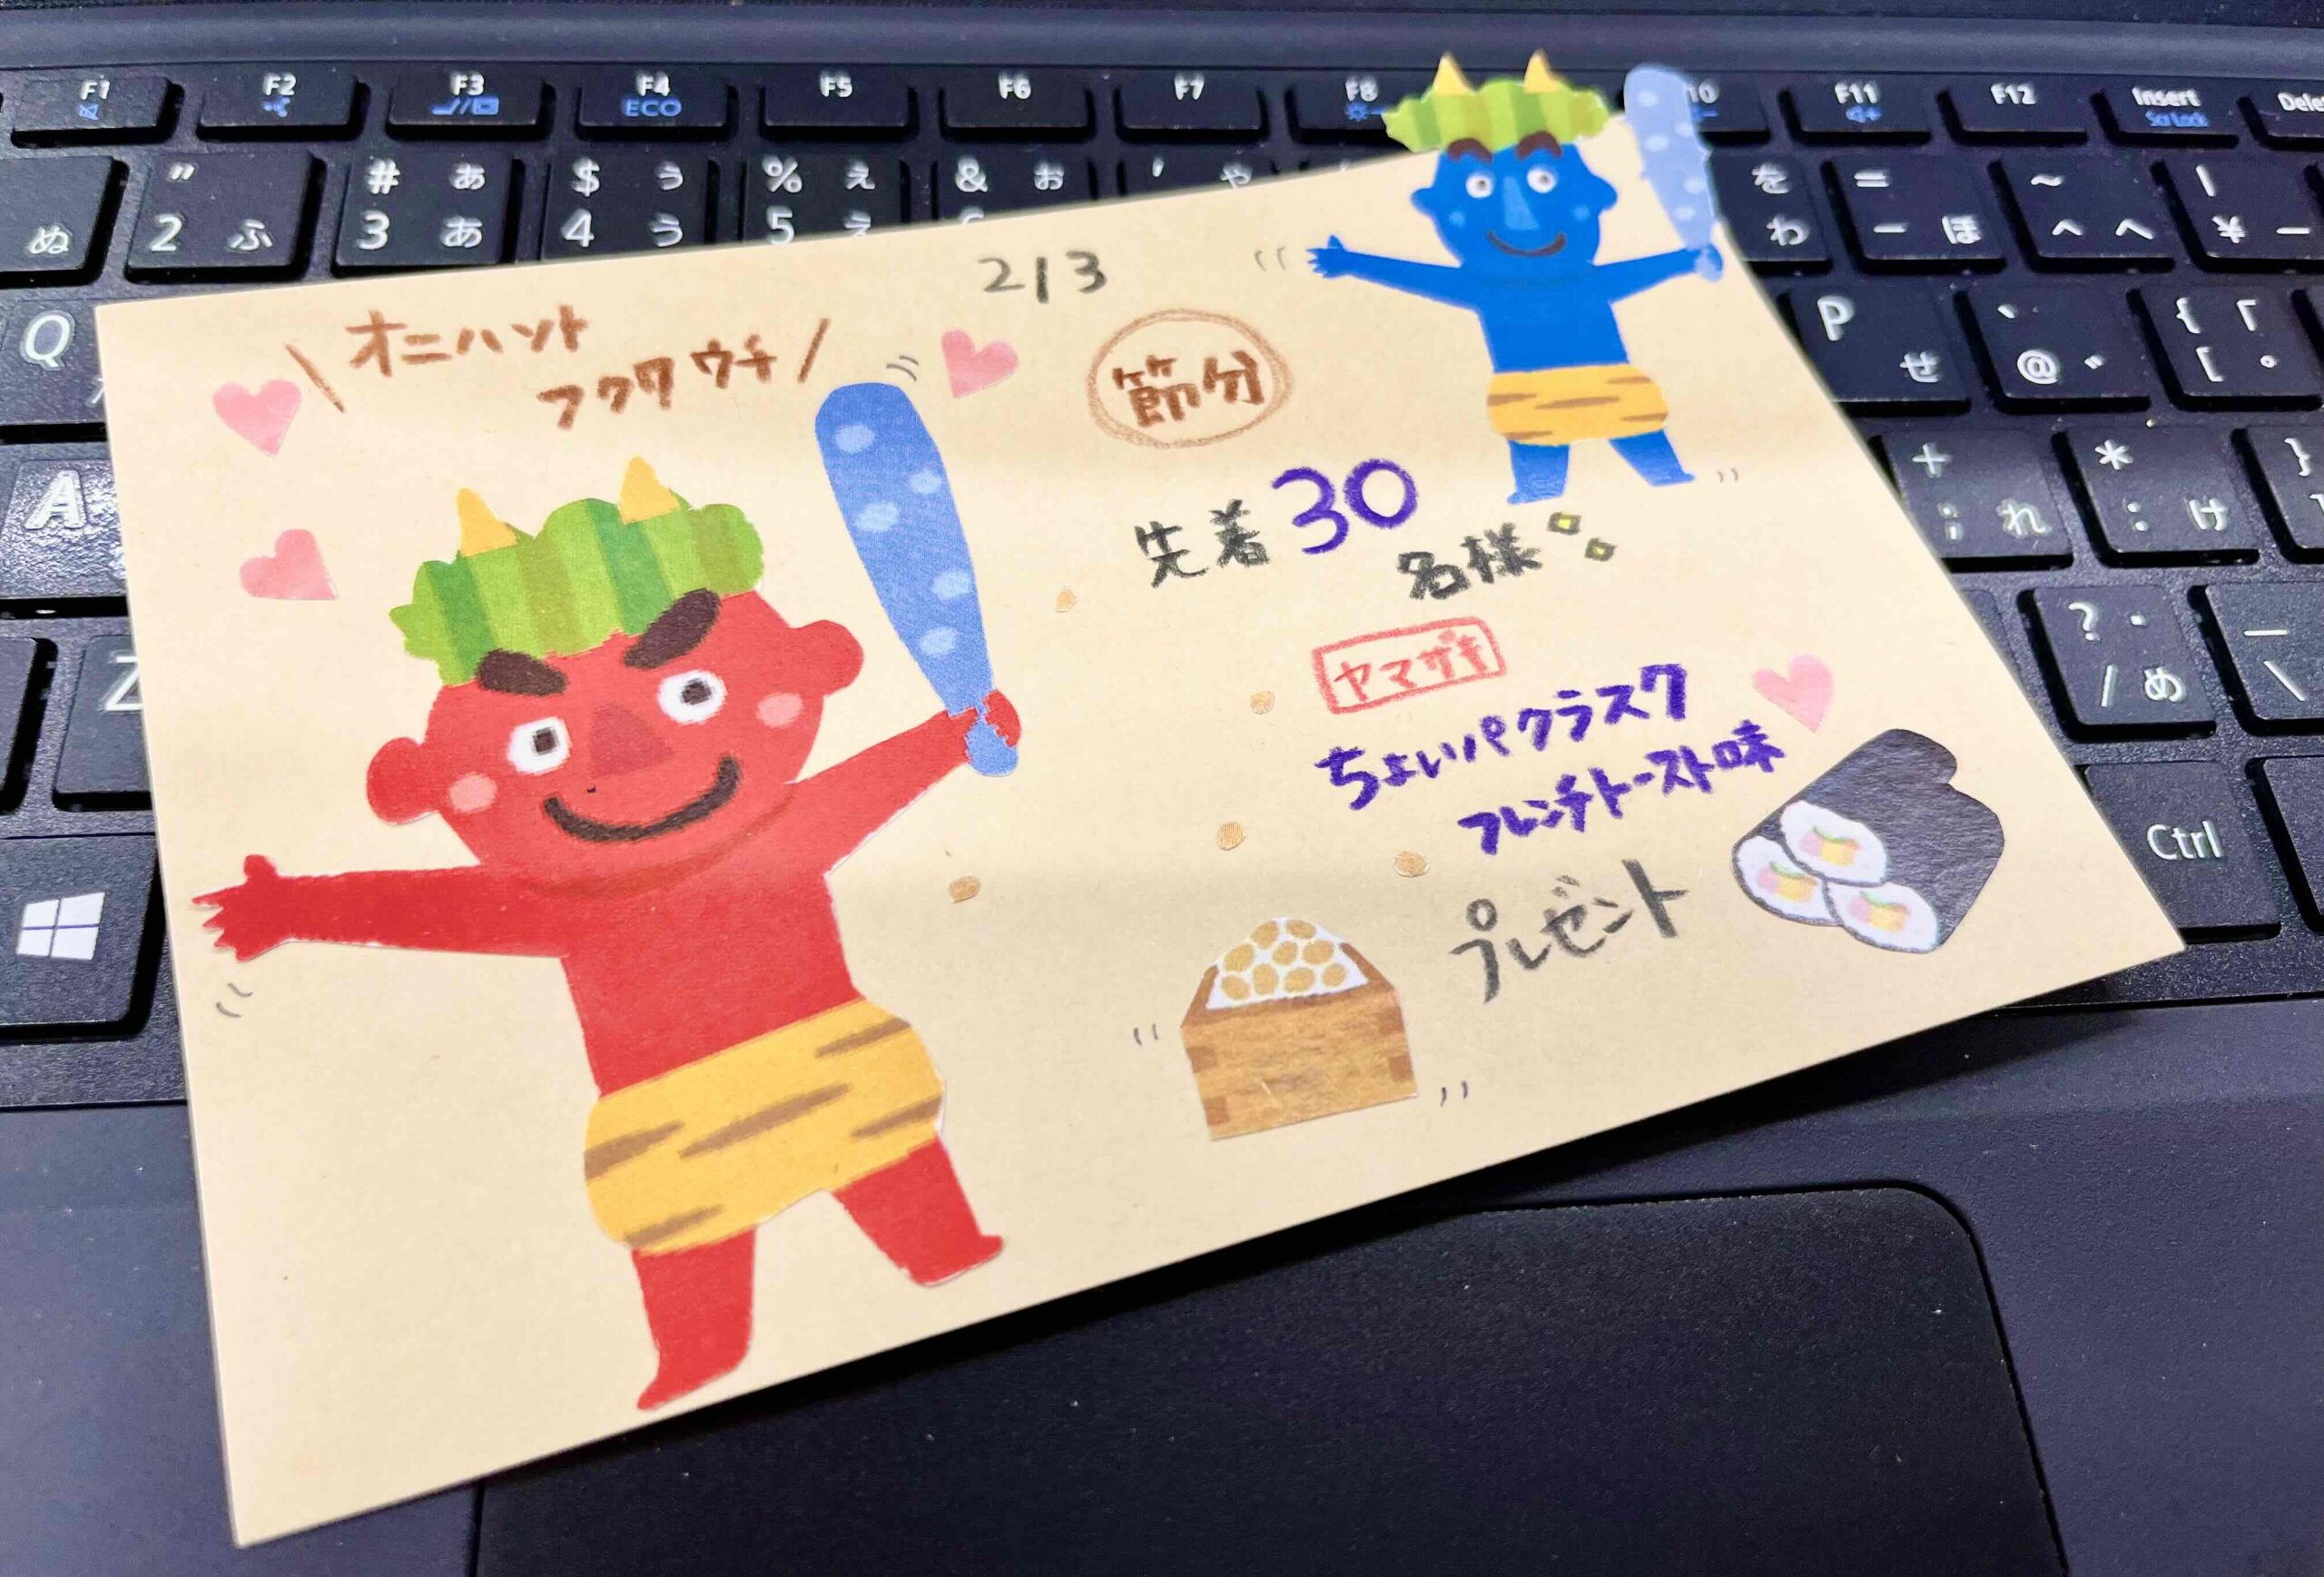 2/3
オニハソト
フクワウチ
節分
先着30
名様
ヤマザキ
ちょいパクラスク
フレンチトースト味
プレゼント
F1
F2
F3
F4
ECO
F5
F6
F7
F8
F11
F12
Insert
Scr Lock
ぬ
" 2 ふ
# あ 3 あ
$ ぅ 4 う
% ぇ 5 え
& ぉ
' ゃ
を わ
= - ほ
~ ^ へ
| ¥ ー
Q
P せ
` @ ゛
{ 「 [ ゜
A
+ ; れ
* : け
}
Z
? ・ / め
_ \
Ctrl